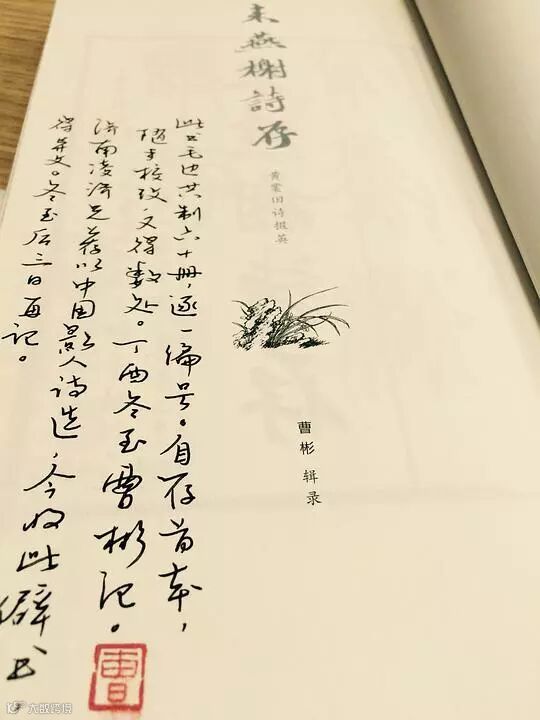 来燕榭詩存
黄裳旧诗掇英
曹彬 辑录
此书毛边共制六十册，逐一编号。自存首本，
随手校改，又得数处。丁酉冬至曹彬记。
济南凌济兄荐以中国影人诗选，今收此僻书
得文。冬至后三日再记。
曹
大数跨境